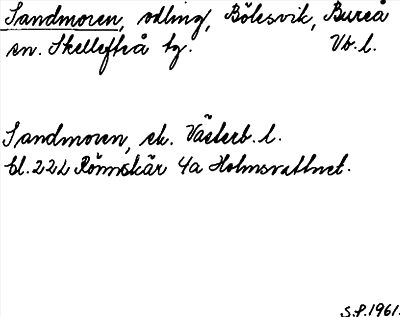 Sandmoren, odling, Bölesvik, Bureå
sn. Skellefteå tg. Vb. l.
Sandmoren, ek. Västerb. l.
bl. 222 Rönnskär 4a Holmsvattnet.
S.P. 1961.